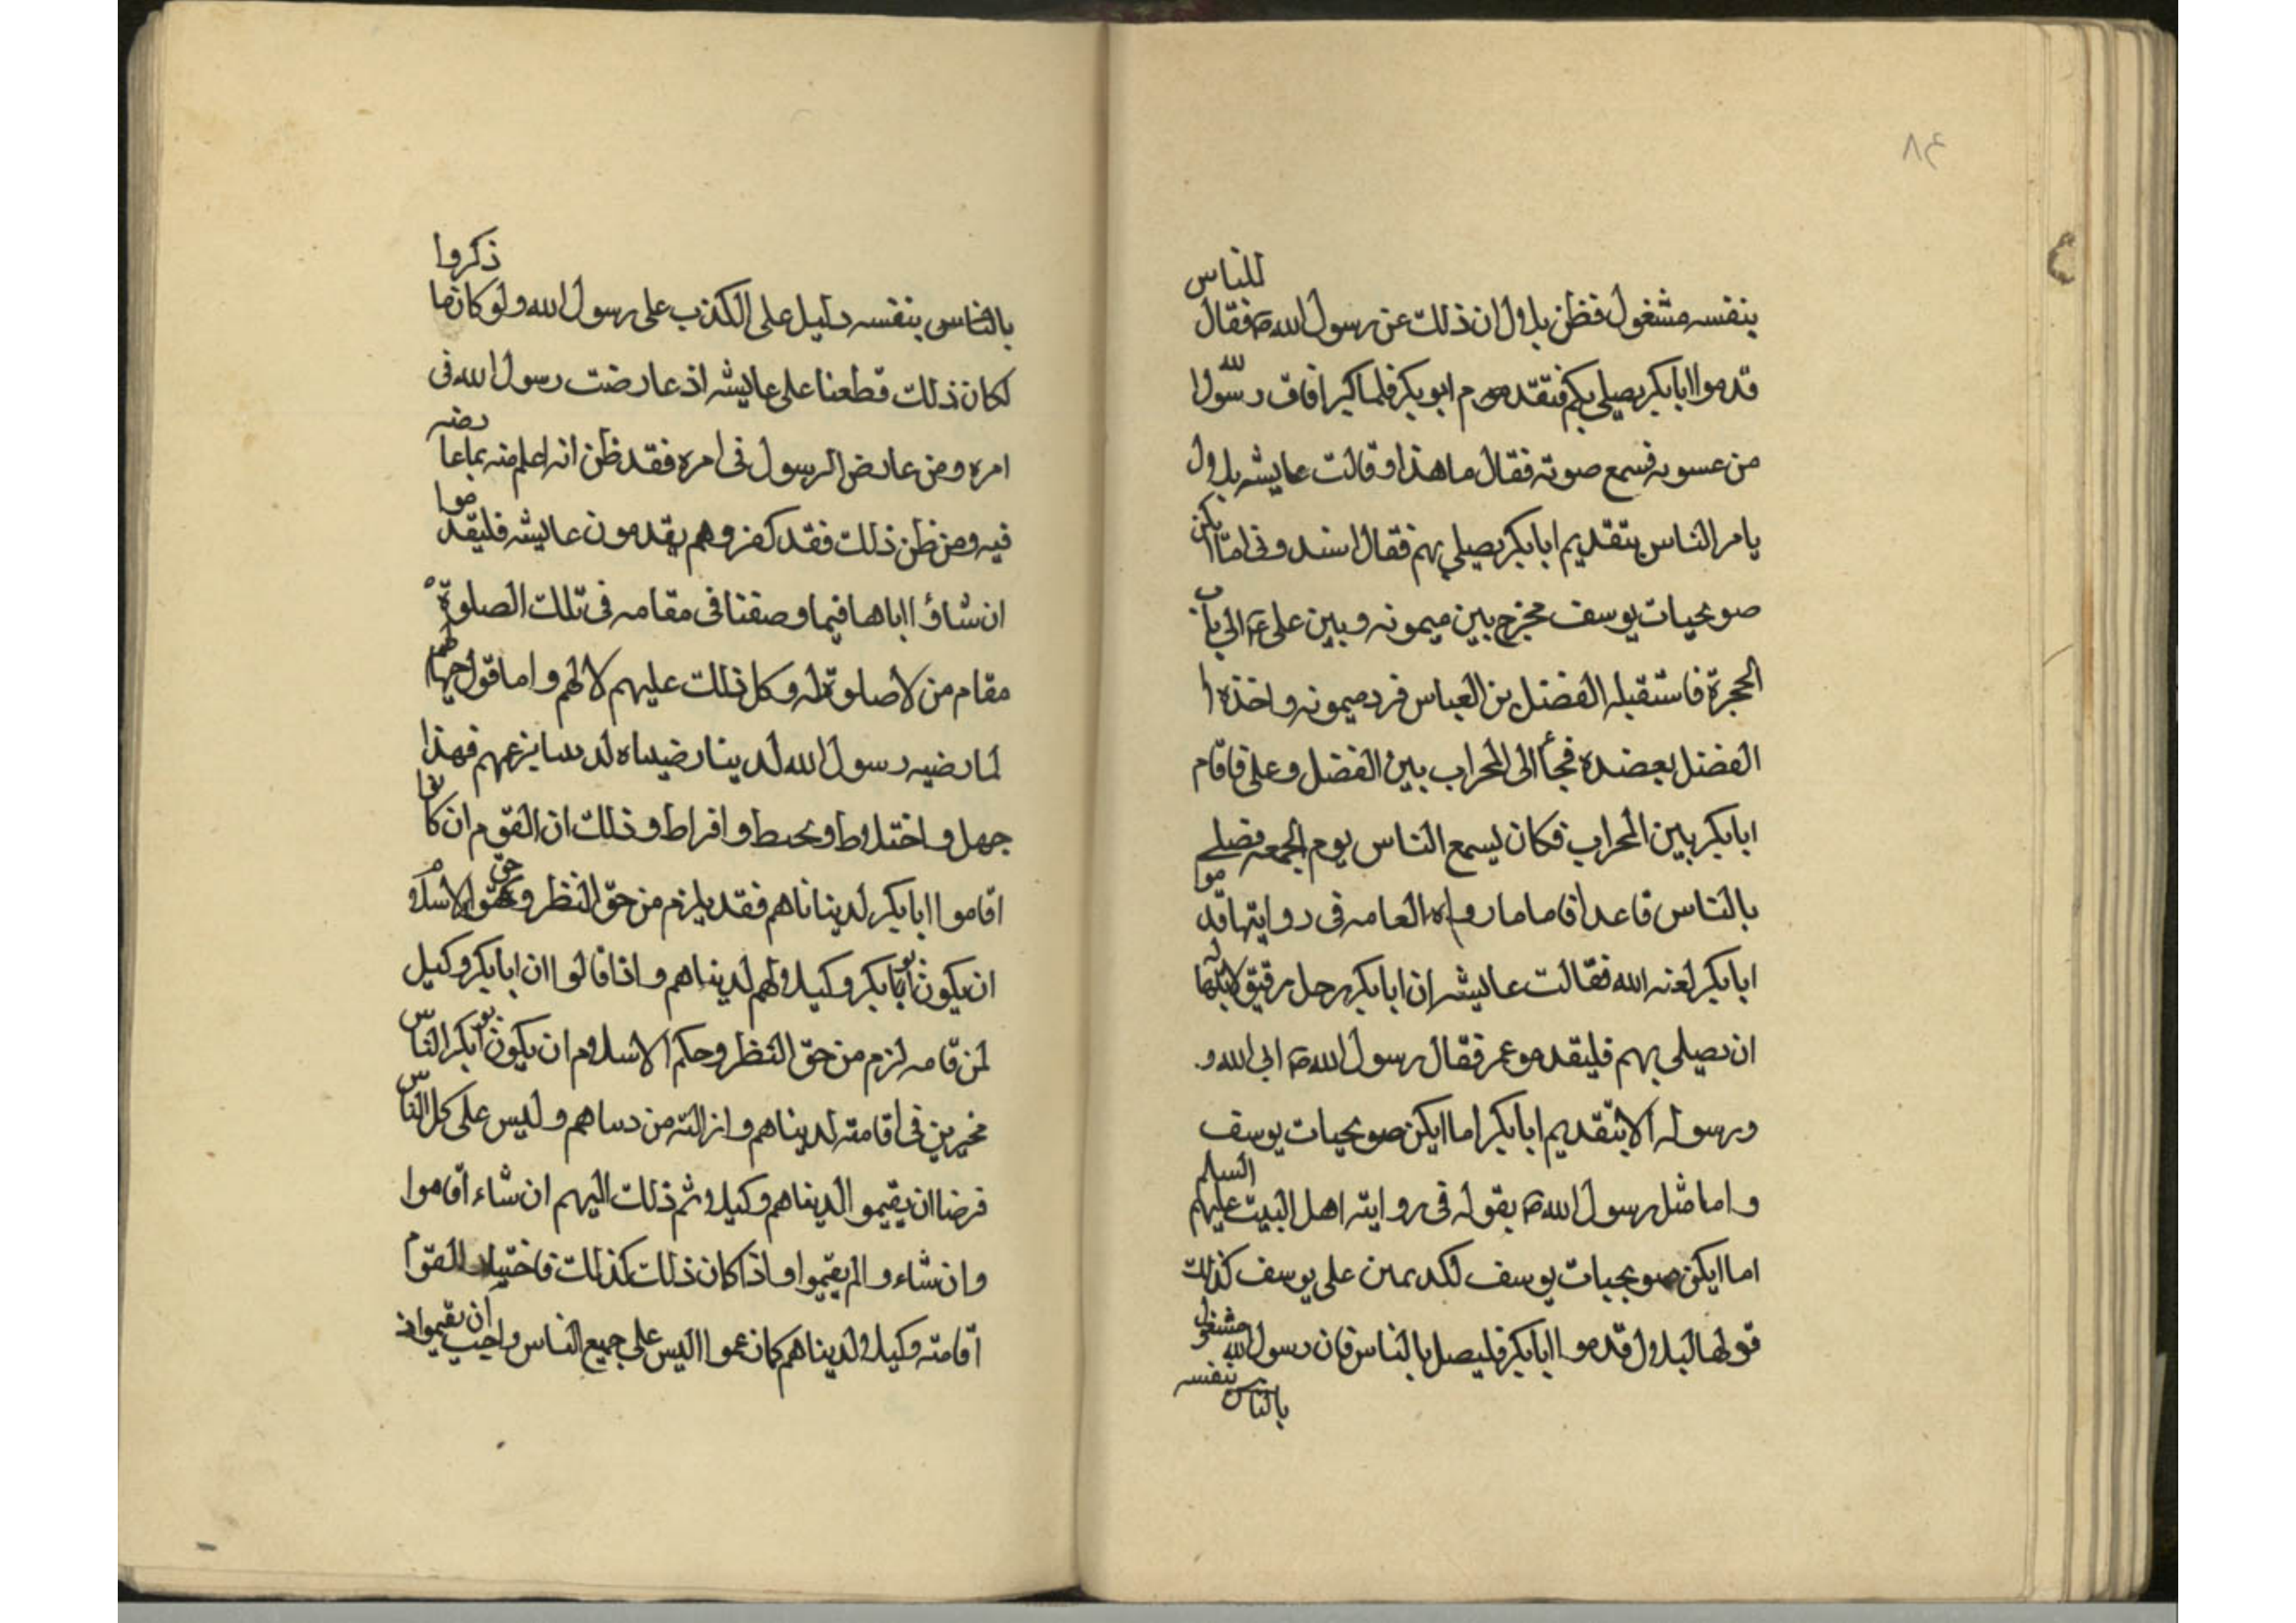 ٨٤
بنفسه مشغول فظن بلال ان ذلك عن رسول الله ص فقال للناس
قدموا ابابكر يصلي بكم فتقدم ابو بكر فلما كبر افاق رسول الله
من عسوبه فسمع صوته فقال ما هذا وقالت عايشه بلال
يامر الناس بتقديم ابابكر يصلي بهم فقال اسندوني اما ايكن
صويحبات يوسف فخرج بين ميمونه وبين علي ع الى باب
الحجرة فاستقبله الفضل بن العباس فرد ميمونه واخذه
الفضل بعضده فجأ الى المحراب بين الفضل وعلي فاقام
ابابكر بين المحراب فكان يسمع الناس يوم الجمعه فصلى
بالناس قاعدا فاما ما رواه العامه في روايتها قدموا
ابابكر لعنه الله فقالت عايشه ان ابابكر رجل رقيق
ان يصلي بهم فليقدمو عمر فقال رسول الله ص ابى الله و
ورسوله الا بتقديم ابابكر اما ايكن صويحبات يوسف
واما مثل رسول الله ص بقوله في روايته اهل البيت عليهم السلم
اما ايكن صويحبات يوسف على يوسف كذلك
قولها لبلال قدموا ابابكر فليصل بالناس فان رسول الله مشغول بنفسه
بالناس
بالناس بنفسه دليل على الكذب على رسول الله ولو كان ما ذكروا
لكان ذلك قطعنا على عايشه اذ عارضت رسول الله في
امره ومن عارض الرسول في امره فقد ظن انه اعلم منه بما عارضه
فيه ومن ظن ذلك فقد كفر وهم يقدمون عايشه فليقدموا
ان شاؤا اباها فيما وصفنا في مقامه في تلك الصلوة
مقام من لا صلوة له وكل ذلك عليهم لا لهم واما قول جهالهم
لما رضيه رسول الله لديننا رضيناه بزعمهم فهذا
جهل واختلاط وافراط وذلك ان القوم ان كانوا
اقاموا ابابكر لديناناهم فقد يلزم من حق النظر وحق الاسلام
ان يكون ابو بكر وكيلا لهم لديناهم واذا قالوا ان ابابكر وكيل
لمن قامه لزم من حق النظر وحكم الاسلام ان يكون ابو بكر الناس
مخيرين في اقامته لديناهم وازالته من وليس على كل الناس
فرضا ان يقيموا لديناهم وكيلا ثم ذلك اليهم ان شاء اقاموا
وان شاء والم يقيموا واذا كان ذلك كذلك القوم
اقامته وكيلا لديناهم كما زعموا اليس على جميع الناس واجب ان يقيموا اذ